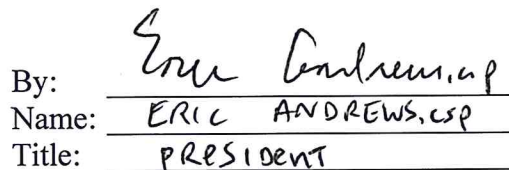 By: Eric Andrews, csp
Name: ERIC ANDREWS, CSP
Title: PRESIDENT